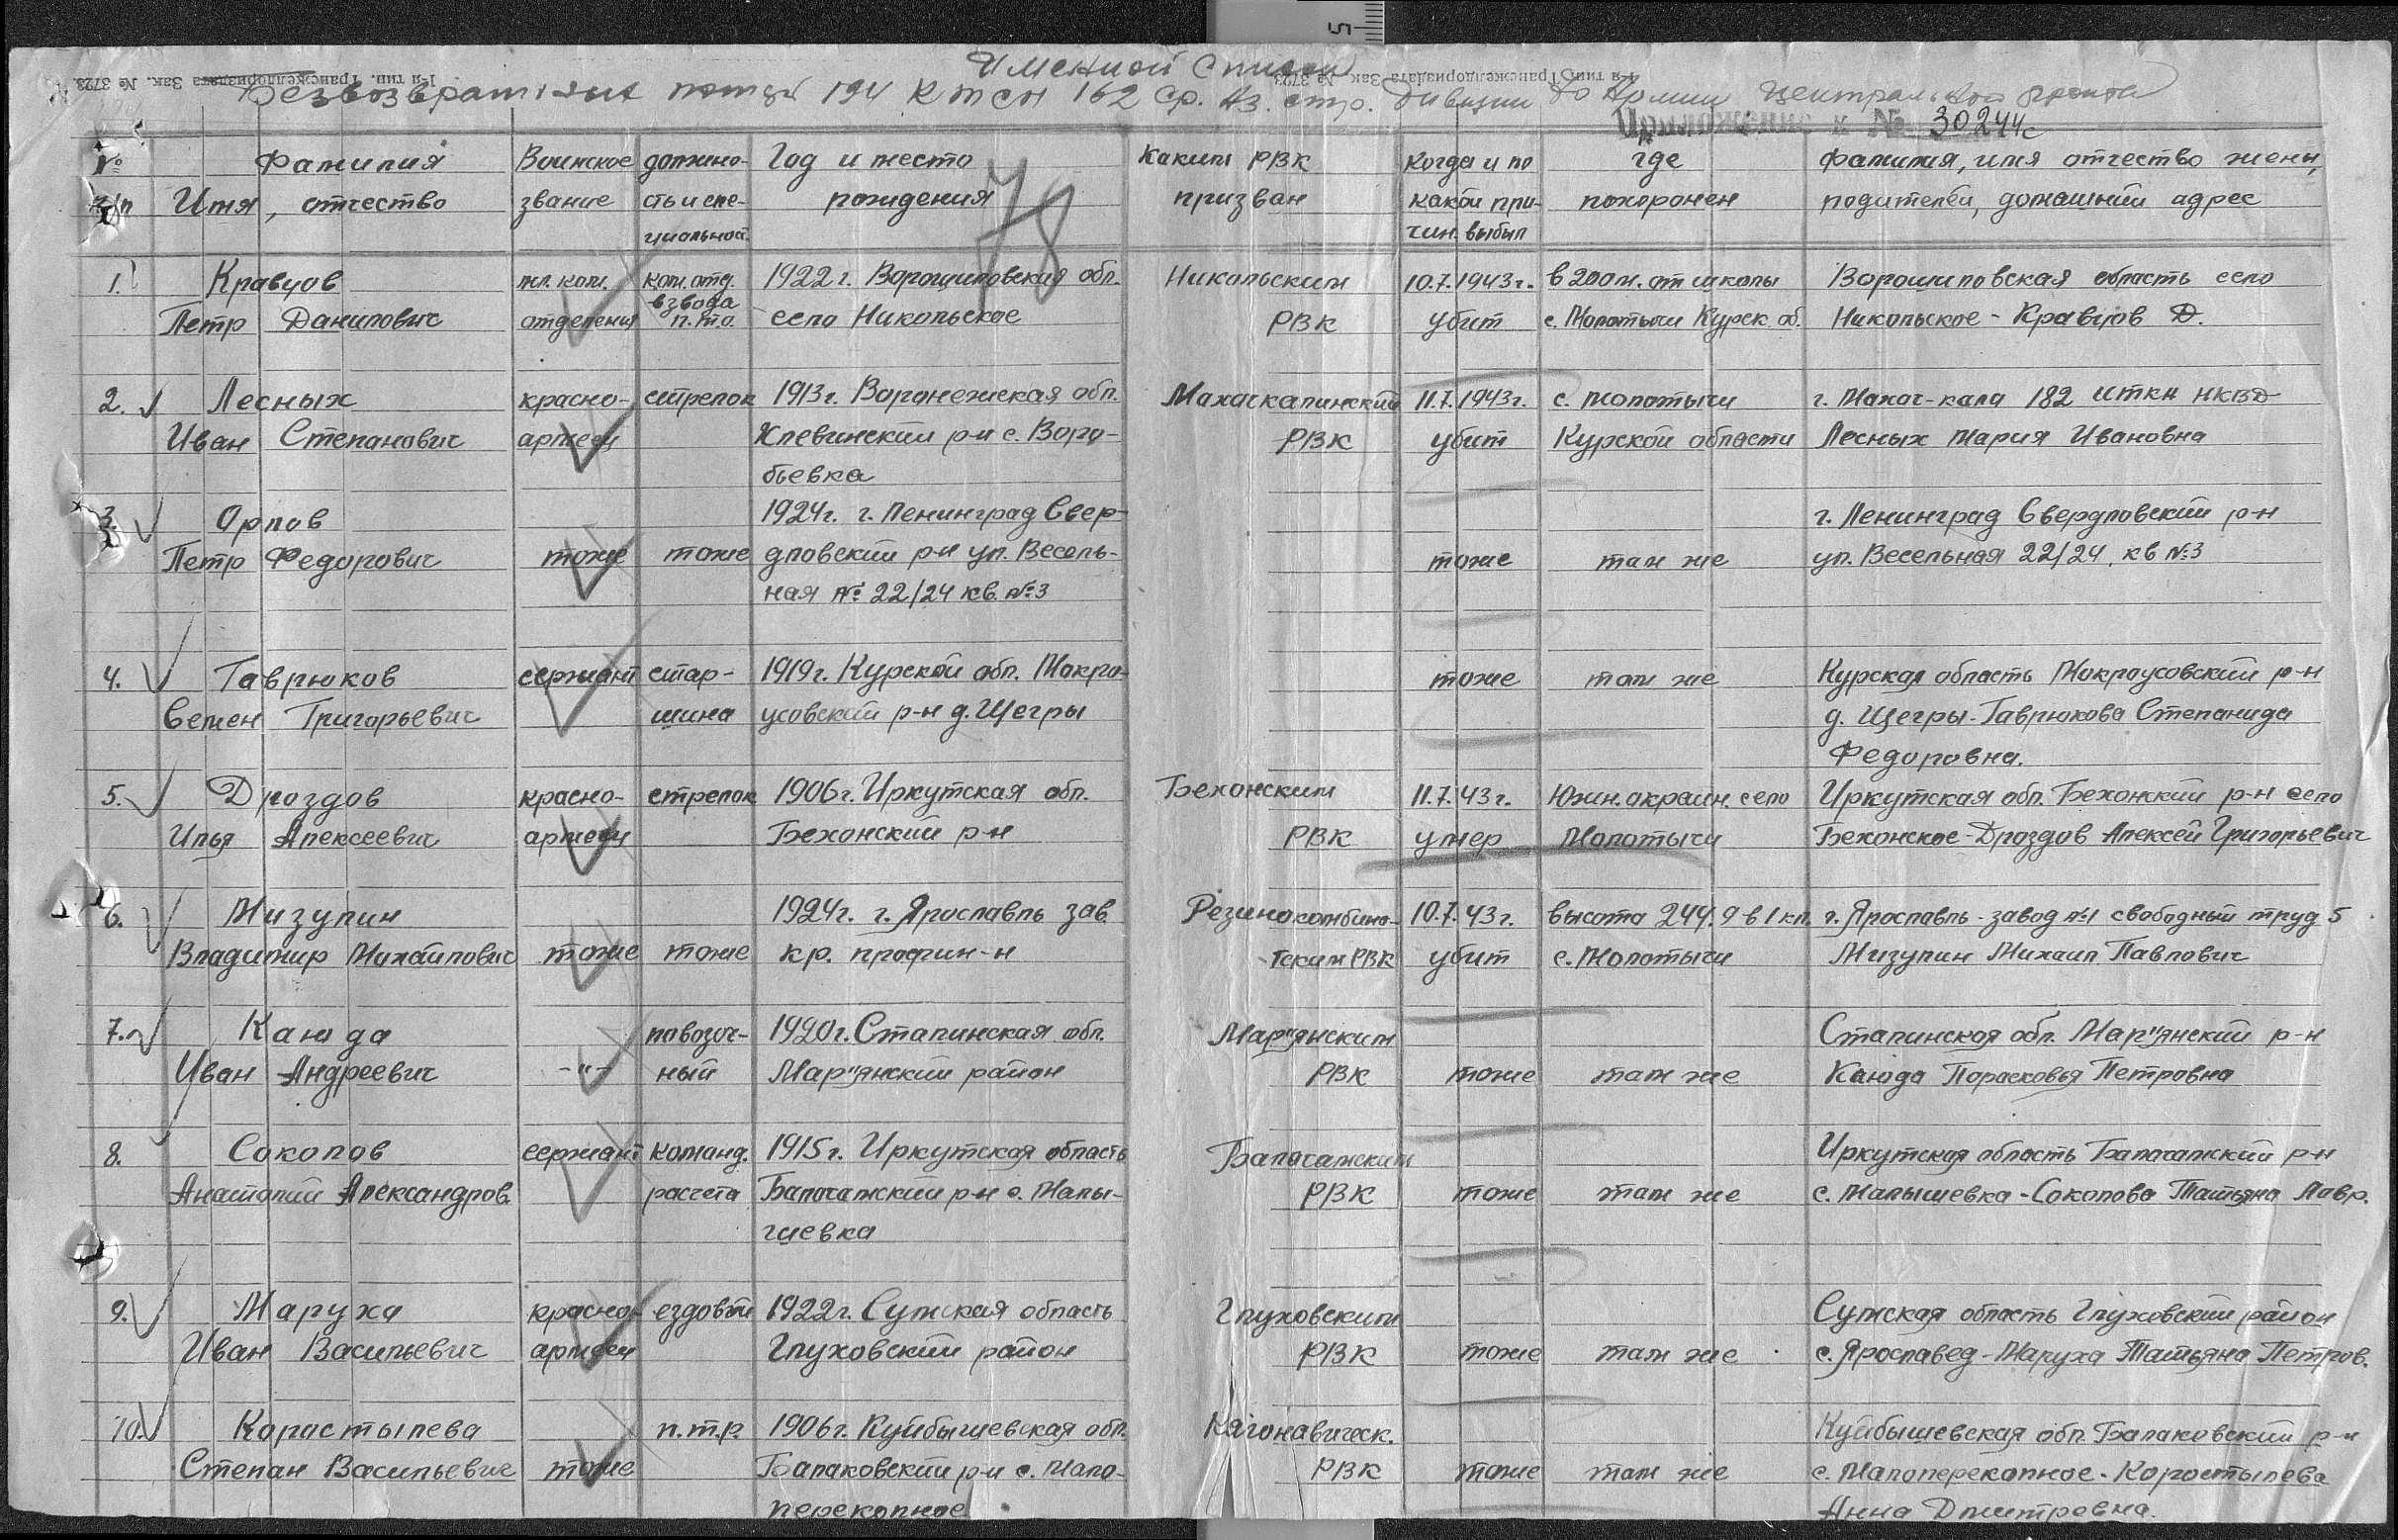 Именной список
Безвозвратных потерь 194 КТСП 162 ср. Аз. стр. дивизии 70 Армии Центрального фронта
№ 30244с
№ п/п Фамилия Имя, отчество Воинское звание должно-сть и спе-циальност. Год и место рождения Каким РВК призван Когда и по какой при-чин. выбыл где похоронен фамилия, имя отчество жены, родителей, домашний адрес
78
1. Кравцов мл. ком. ком. отд. 1922 г. Ворошиловская обл. Никольским 10.7.1943г. в 200 м. от школы Ворошиловская область село
взвода
Петр Данилович отделения п.т.о. село Никольское РВК убит с. Молотычи Курск. об. Никольское - Кравцов Д.
2. Лесных красно- стрелок 1913 г. Воронежская обл. Махачкалинский 11.7.1943г. с. Молотычи г. Махач-кала 182 НКВД
Иван Степанович армеец Хлевинский р-н с. Воро- РВК убит Курской области Лесных Мария Ивановна
бьевка
3. Орлов 1924г. г. Ленинград Свер- г. Ленинград Свердловский р-н
Петр Федорович тоже тоже дловский р-н ул. Весель- тоже там же ул. Весельная 22/24, кв №3
ная № 22/24 кв. №3
4. Гаврюков сержант стар- 1919 г. Курской обл. Мокро- тоже там же Курская область Мокроусовский р-н
Семен Григорьевич шина усовский р-н д. Щегры д. Щегры - Гаврюкова Степанида
Федоровна.
5. Дроздов красно- стрелок 1906 г. Иркутская обл. Бехонским 11.7.43 г. Южн. окраин. село Иркутская обл. Бехонский р-н село
Илья Алексеевич армеец Бехонский р-н РВК умер Молотычи Бехонское - Дроздов Алексей Григорьевич
6. Мизулин 1924г. г. Ярославль зав Резинокомбина- 10.7.43 г. высота 244.9 в 1 кл. г. Ярославль - завод №1 свободный труд 5
Владимир Михайлович тоже тоже кр. профин-н тским РВК убит с. Молотычи Мизулин Михаил Павлович
7. Каюда повозоч- 1920 г. Сталинская обл. Мар"янским Сталинская обл. Мар"янский р-н
Иван Андреевич -"- ный Мар"янский район РВК тоже там же Каюда Парасковья Петровна
8. Соколов сержант команд. 1915 г. Иркутская область Балаганским Иркутская область Балаганский р-н
Анатолий Александров. расчета Балаганский р-н с. Малы- РВК тоже там же с. Малышевка - Соколова Татьяна Лавр.
шевка
9. Маруха красно- ездовой 1922 г. Сумская область Глуховским Сумская область Глуховский район
Иван Васильевич армеец Глуховский район РВК тоже там же с. Ярославец - Маруха Татьяна Петров.
10. Коростылева п.т.р. 1906 г. Куйбышевская обл. Кагонавическ. Куйбышевская обл. Балаковский р-н
Степан Васильевич тоже Балаковский р-н с. Мало- РВК тоже там же с. Малоперекопное - Коростылева
перекопное Анна Дмитревна.